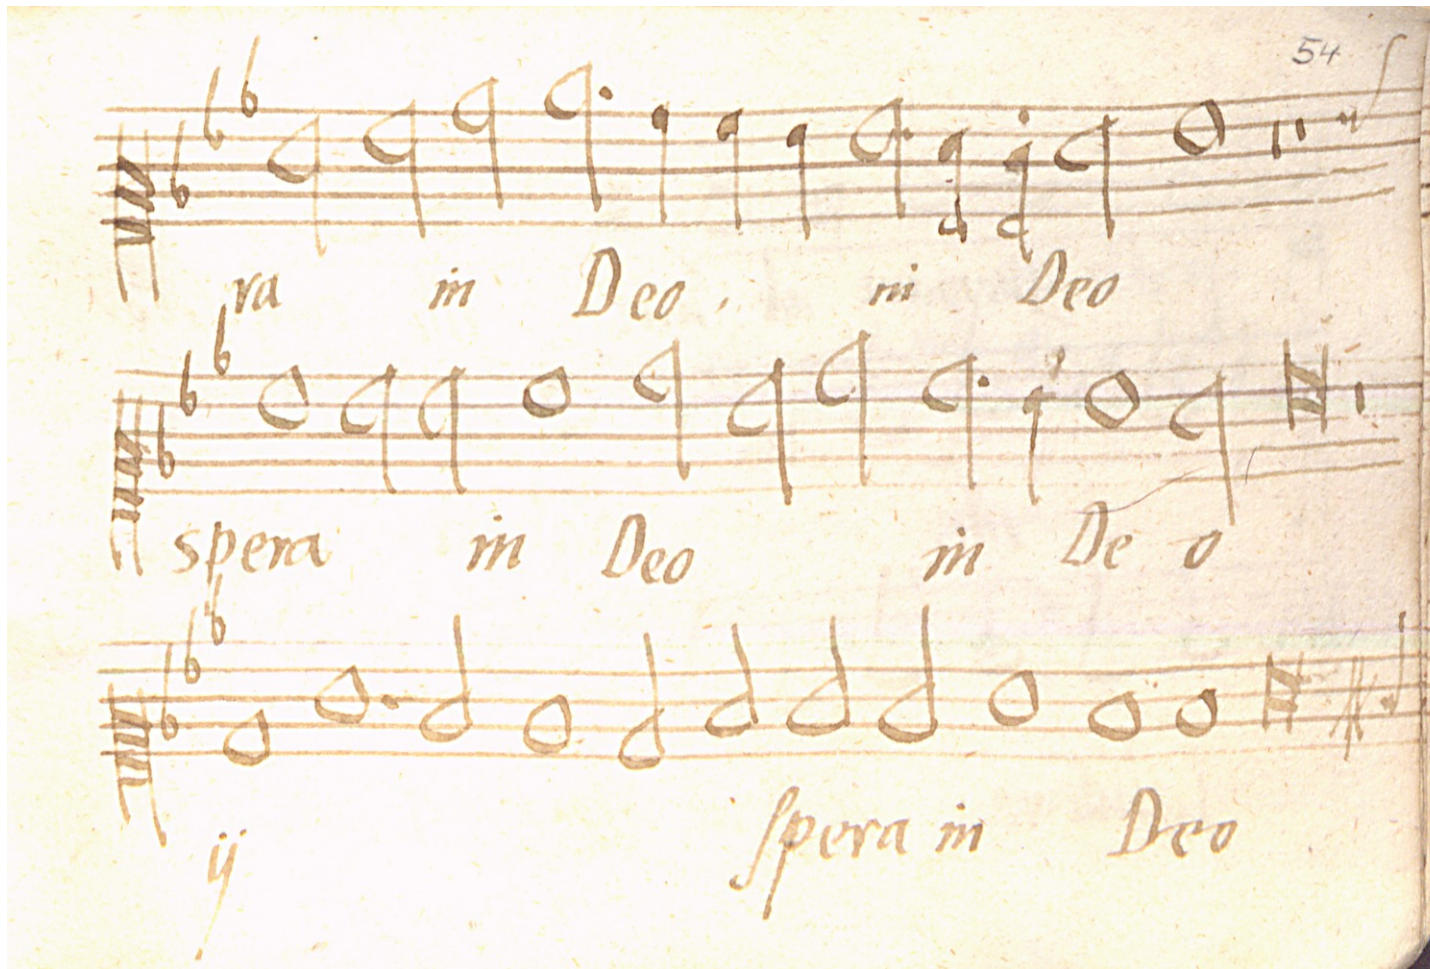 54
ra in Deo in Deo
spera in Deo in De o
ij spera in Deo